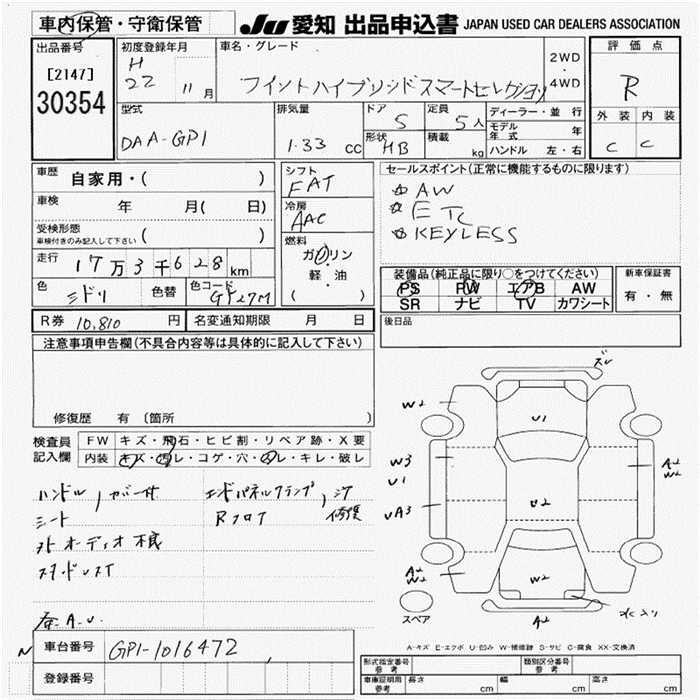 車内保管・守衛保管 JU 愛知 出品申込書 JAPAN USED CAR DEALERS ASSOCIATION
出品番号 [2147] 30354
初度登録年月 H 22 11月
車名・グレード フィットハイブリッドスマートセレクション
2WD・4WD
評価点 R
外装 C 内装 C
型式 DAA-GP1
排気量 1.33 cc
ドア 5 定員 5人
形状 HB 積載 kg
ディーラー・並行
モデル年式 年
ハンドル 左・右
車歴 自家用・( )
車検 年 月( 日)
受検形態 ( )
車検付きのみ記入して下さい
走行 17万3千628km
色 ミドリ 色替 色コード GY27M
シフト FAT
冷房 AAC
燃料 ガソリン 軽・油 ( )
セールスポイント(正常に機能するものに限ります)
AW
ETC
KEYLESS
装備品(純正品に限り○をつけてください)
PS PW エアB AW
SR ナビ TV カワシート
新車保証書 有・無
R券 10,810 円 名変通知期限 月 日
後日品
注意事項申告欄(不具合内容等は具体的に記入して下さい)
修復歴 有 〔箇所 〕
検査員記入欄
FW キズ・飛石・ヒビ割・リペア跡・X要
内装 キズ・汚レ・コゲ・穴・スレ・キレ・破レ
ハンドル
エンドパネルクランプ
シート
Rフロア 修復
外オーディオ
A.U.
ズレ
W2
U1
W3
U1
A2
W2
U2
UA3
A2
W2
W2
A2
スペア
A-キズ E-エクボ U-凹み W-補修跡 S-サビ C-腐食 XX-交換済
N 車台番号 GP1-1016472
登録番号
形式指定番号 参考 類別区分番号 参考
車庫証明用 参考 長さ cm 幅 cm 高さ cm